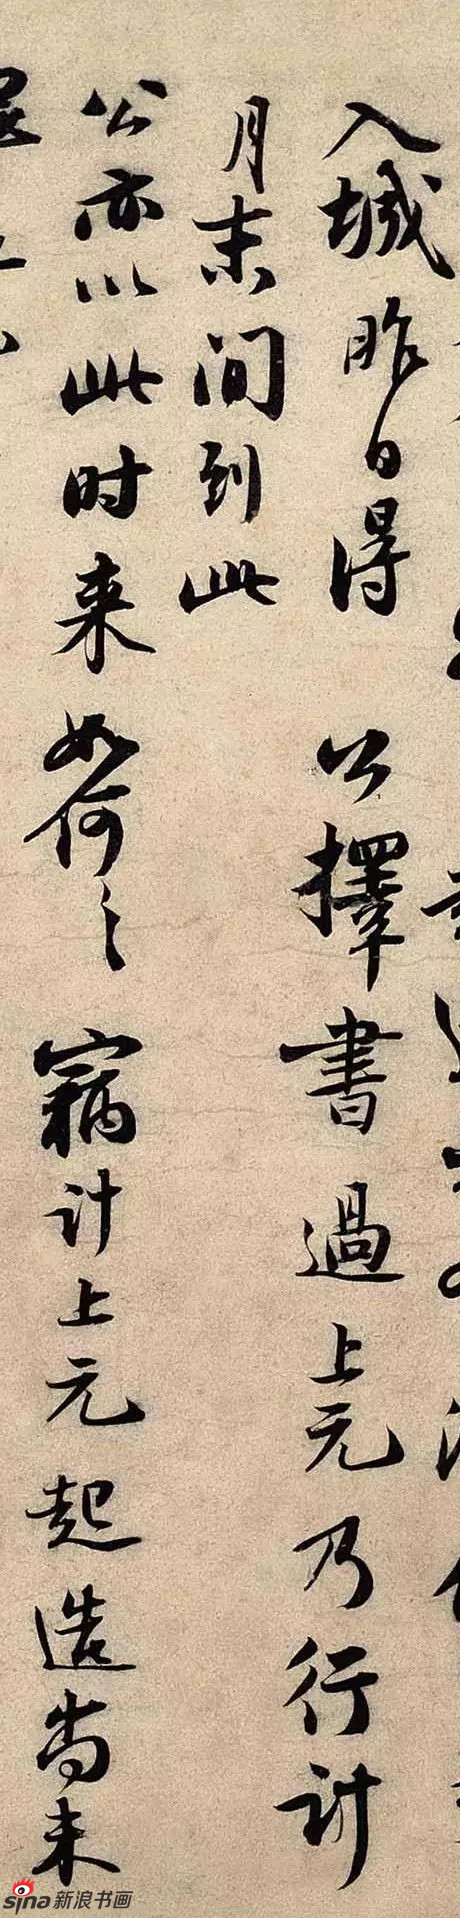 入城昨日得　公擇書過上元乃行計
月末間到此
公亦以此时来如何〻竊計上元起造尚未
sina新浪书画